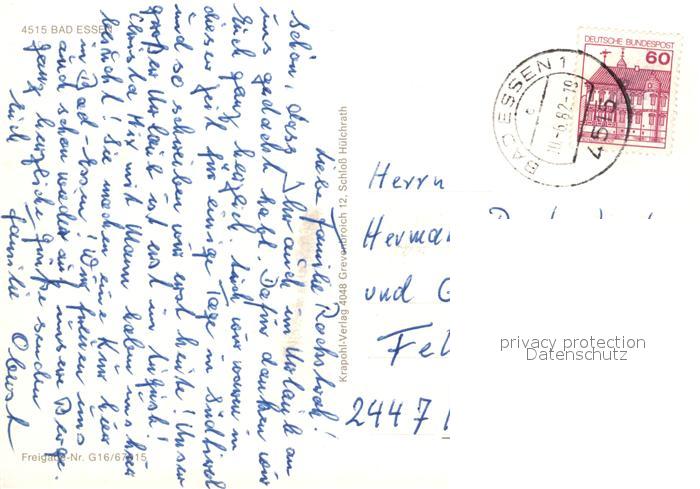 4515 BAD ESSEN
Liebe Familie
schön, dass Ihr auch im Urlaub an
uns gedacht habt. Dafür danken wir
Euch ganz herzlich. Auch wir waren in
dieser Zeit für einige Tage in Südtirol
und so schreiben wir erst heute! Unser
großer Urlaub ist erst in August!
Christa Hix mit Mann haben uns hier
besucht! Sie machen eine Kur hier
in Bad-Essen! Wir freuen uns
auch schon wieder auf unsere Berge.
Ganz herzliche Grüße senden
Euch Familie
Freigabe-Nr. G16/67915
Krapohl-Verlag 4048 Grevenbroich 12, Schloß Hülchrath
DEUTSCHE BUNDESPOST
60
BAD ESSEN 1
4515
Herrn
Herma
und G
Fel
2447
privacy protection
Datenschutz